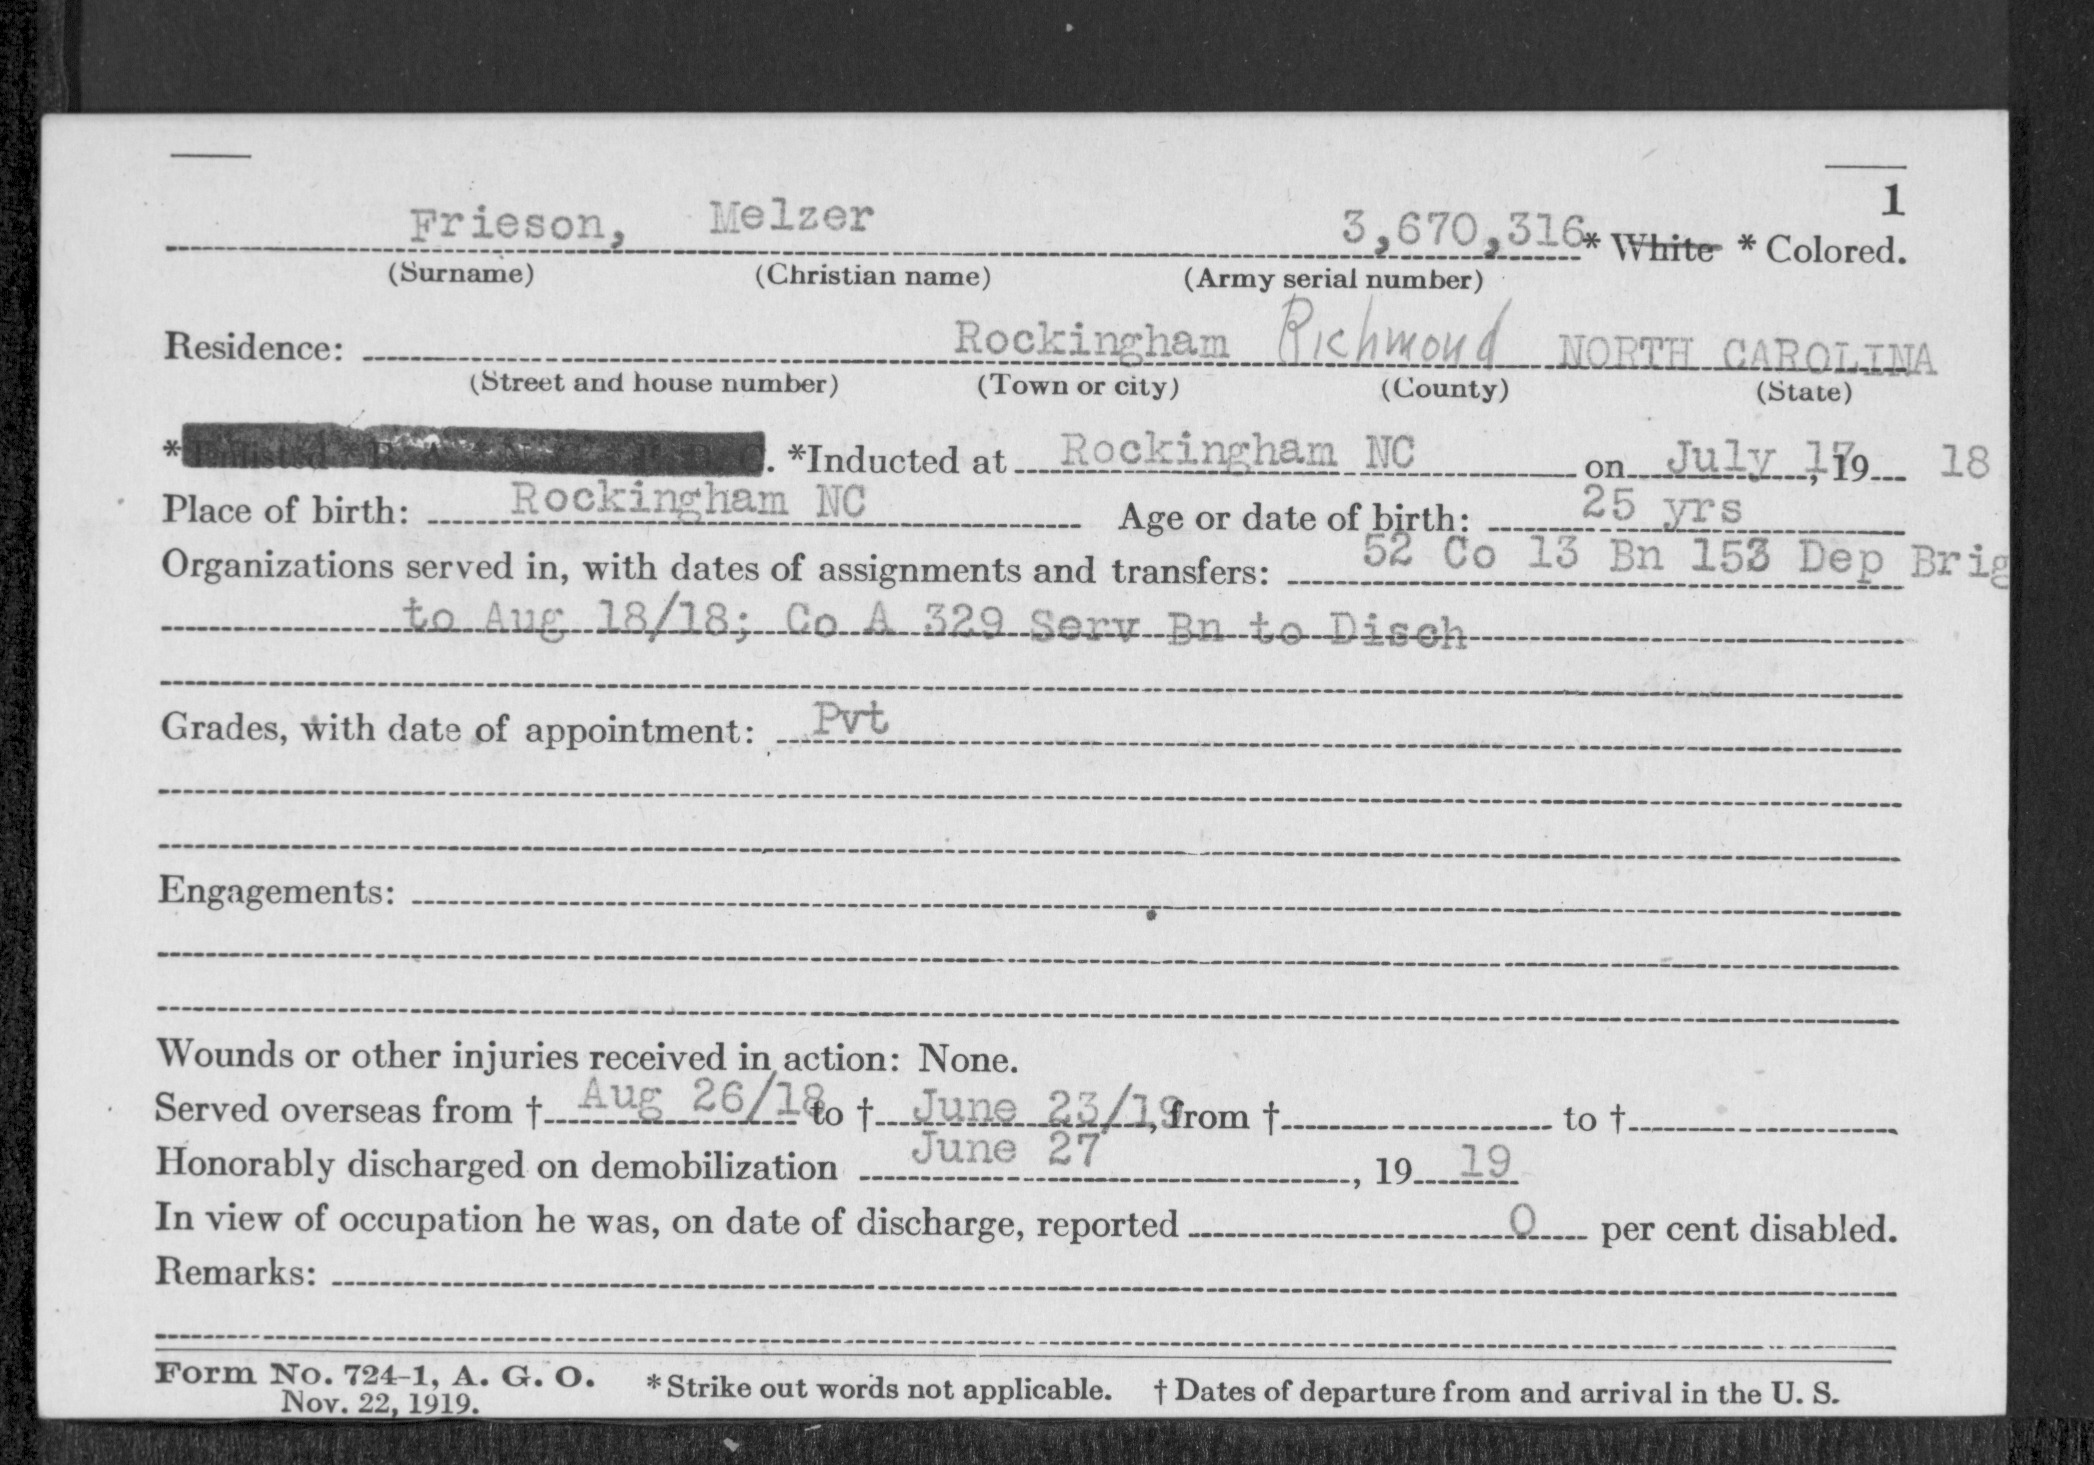 1
Frieson, Melzer 3,670,316 * White * Colored.
(Surname) (Christian name) (Army serial number)
Residence: Rockingham Richmond NORTH CAROLINA
(Street and house number) (Town or city) (County) (State)
*Enlisted * R. A. * N. G. * E. R. C. *Inducted at Rockingham NC on July 17, 19 18
Place of birth: Rockingham NC Age or date of birth: 25 yrs
Organizations served in, with dates of assignments and transfers: 52 Co 13 Bn 153 Dep Brig
to Aug 18/18; Co A 329 Serv Bn to Disch
Grades, with date of appointment: Pvt
Engagements:
Wounds or other injuries received in action: None.
Served overseas from † Aug 26/18 to † June 23/19, from † to †
Honorably discharged on demobilization June 27, 19 19
In view of occupation he was, on date of discharge, reported 0 per cent disabled.
Remarks:
Form No. 724-1, A. G. O. * Strike out words not applicable. † Dates of departure from and arrival in the U. S.
Nov. 22, 1919.